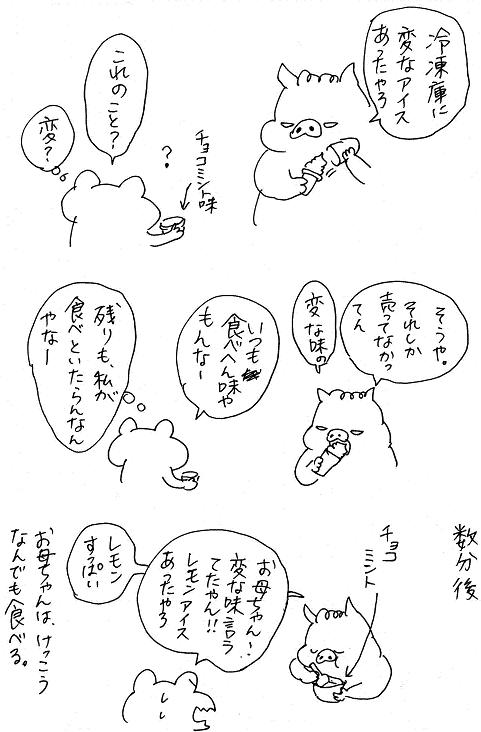 冷凍庫に
変なアイス
あったやろ
これのこと?
変?
?
チョコミント味
そうや。
それしか
売ってなかっ
てん
変な味の
いつも
食べへん味や
もんなー
残りも、私が
食べといたらんなん
やなー
数分後
チョコ
ミント
お母ちゃん!
変な味言う
てたやん!!
レモンアイス
あったやろ
レモン
すっぱい
お母ちゃんは、けっこう
なんでも食べる。